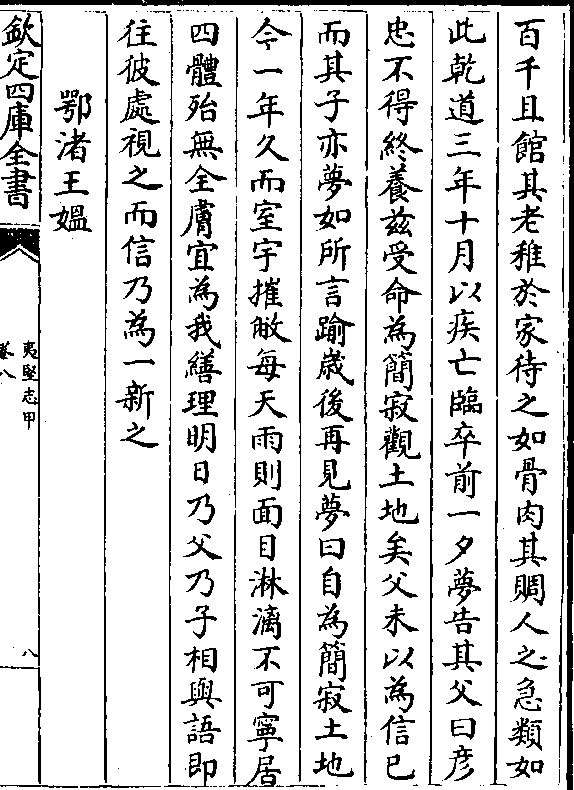 百千且館其老稚於家待之如骨肉其賙人之急類如
此乾道三年十月以疾亡臨卒前一夕夢告其父曰彦
忠不得終養兹受命為簡寂觀土地矣父未以為信已
而其子亦夢如所言踰嵗後再見夢曰自為簡寂土地
今一年久而室宇摧敝每天雨則面目淋漓不可寧居
四體殆無全膚宜為我繕理明日乃父乃子相與語即
往彼處視之而信乃為一新之
鄂渚王媪
欽定四庫全書
夷堅志甲
卷八
八